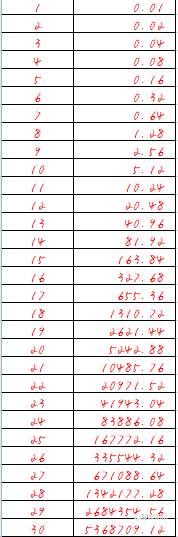 1 0.01
2 0.02
3 0.04
4 0.08
5 0.16
6 0.32
7 0.64
8 1.28
9 2.56
10 5.12
11 10.24
12 20.48
13 40.96
14 81.92
15 163.84
16 327.68
17 655.36
18 1310.72
19 2621.44
20 5242.88
21 10485.76
22 20971.52
23 41943.04
24 83886.08
25 167772.16
26 335544.32
27 671088.64
28 1342177.28
29 2684354.56
30 5368709.12